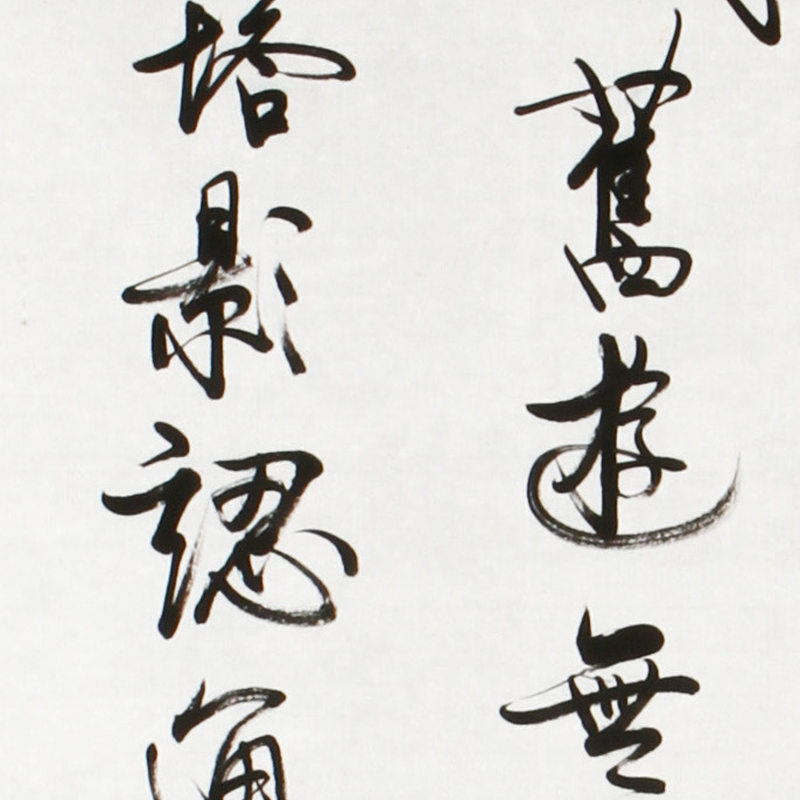 舊遊無
塔影認通